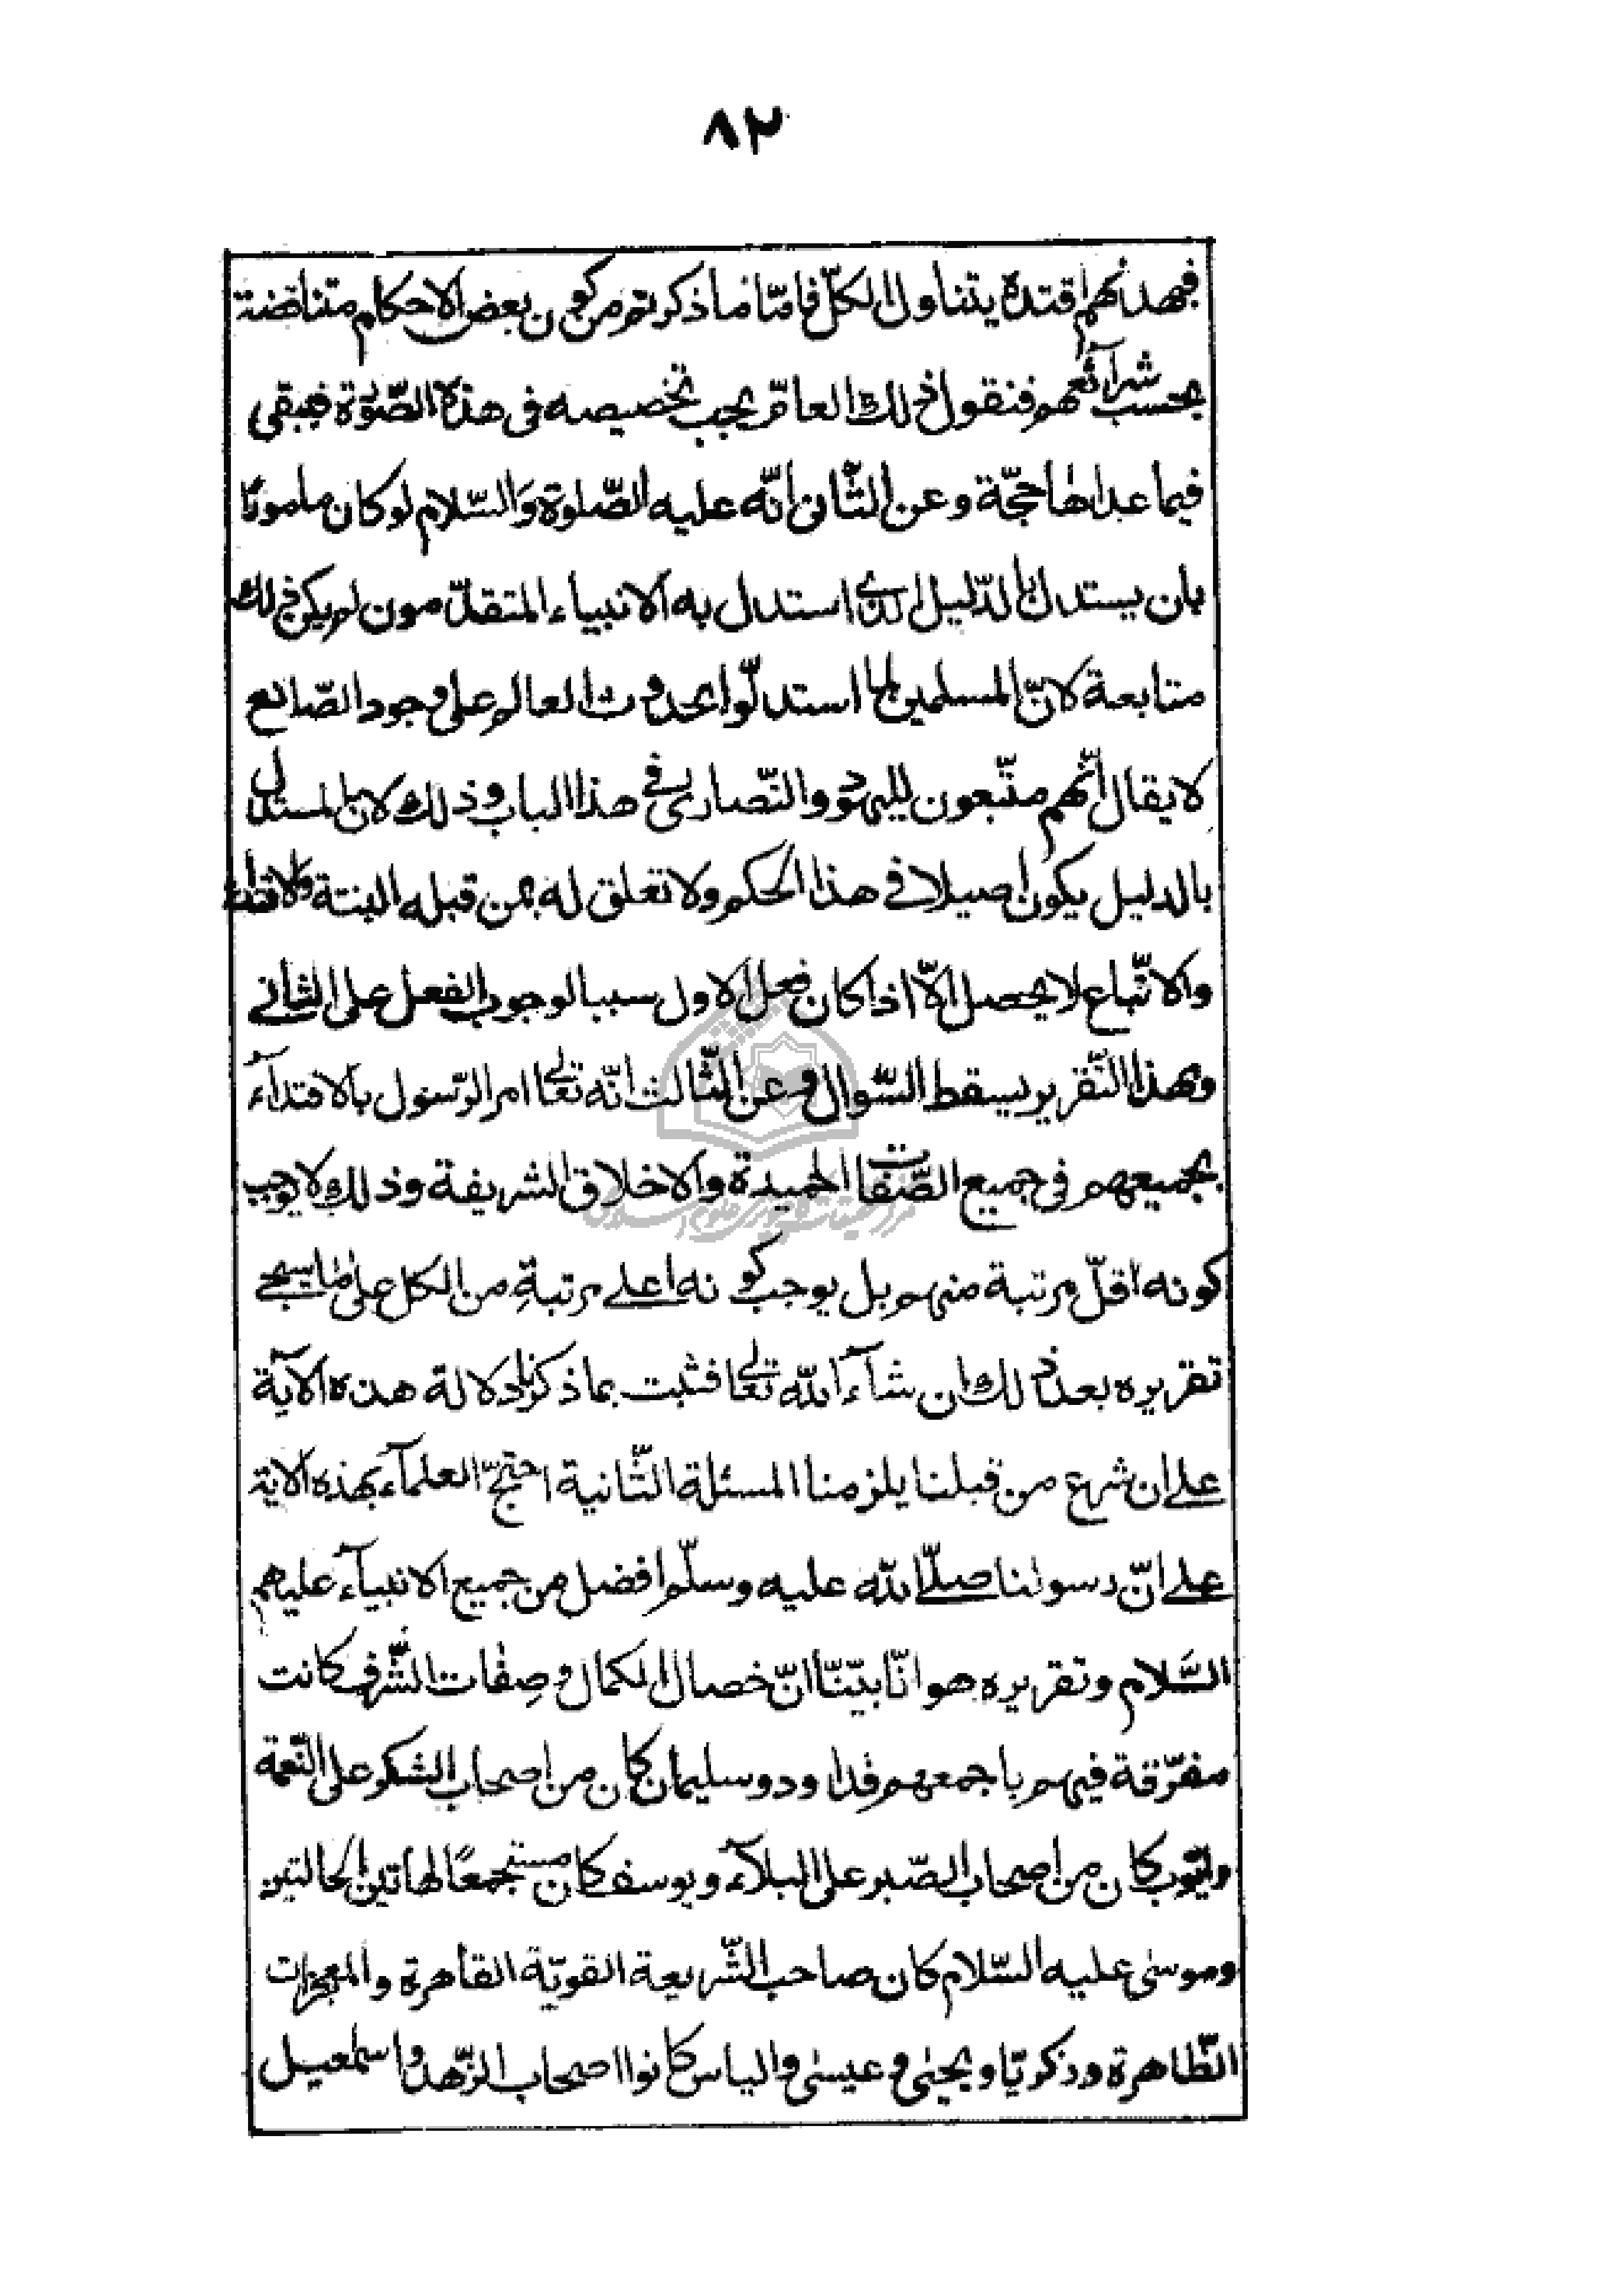 ٨٢
فبهديهم اقتده يتناول الكلّ فامّا ما ذكرتم من كون بعض الاحكام متناقضة
بحسب شرآئعهم فنقول ذلك العامّ يجب تخصيصه فى هذه الصّورة فيبقى
فيما عداها حجّة وعن الثّانى انّه عليه الصّلوة وَالسّلام لو كان مامورًا
بان يستدل بالدّليل الذى استدل به الانبياء المتقدّمون لم يكن ذلك
متابعة لانّ المسلمين لما استدلّوا بحدوث العالم على وجود الصّانع
لا يقال انّهم متّبعون لليهود والنّصارى فى هذا الباب وذلك لان المستدل
بالدليل يكون اصيلا فى هذا الحكم ولا تعلق له بمن قبله البتة والاقتداء
والاتّباع لا يحصل الّا اذا كان فعل الاول سببا لوجوب الفعل على الثانى
وبهذا التّقرير يسقط السّوال وعن الثّالث انّه تعالى امر الرّسول بالاقتدآء
بجميعهم فى جميع الصّفات الحميدة والاخلاق الشريفة وذلك لا يوجب
كونه اقلّ مرتبة منهم بل يوجب كونه اعلى مرتبةِ من الكل على ما سيجى
تقريره بعد ذلك ان شآء الله تعالى فثبت بما ذكرنا دلالة هذه الآية
على ان شرع من قبلنا يلزمنا المسئلة الثّانية احتجّ العلمآء بهذه الاية
على انّ رسولنا صلّى الله عليه وسلّم افضل من جميع الانبيآء عليهم
السَّلام وتقريره هو انّا بيّنّا انّ خصال الكمال وصِفات الشّرف كانت
مفرّقة فيهم باجمعهم فداود وسليمان كان من اصحاب الشكر على النّعمة
وايّوب كان من اصحاب الصّبر على البلآء ويوسف كان مستجمعًا لهاتين الحالتين
وموسى عليه السّلام كان صاحب الشّريعة القويّة القاهرة والمعجزات
الظّاهرة وزكريّا ويحيى وعيسى والياس كانوا اصحاب الزّهد واسمعيل